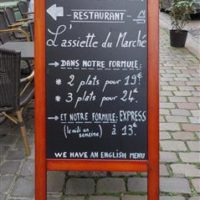 RESTAURANT
L'assiette du Marché
DANS NOTRE FORMULE:
* 2 plats pour 19€
* 3 plats pour 24€
ET NOTRE FORMULE: EXPRESS
(le midi en semaine) à 13€
WE HAVE AN ENGLISH MENU